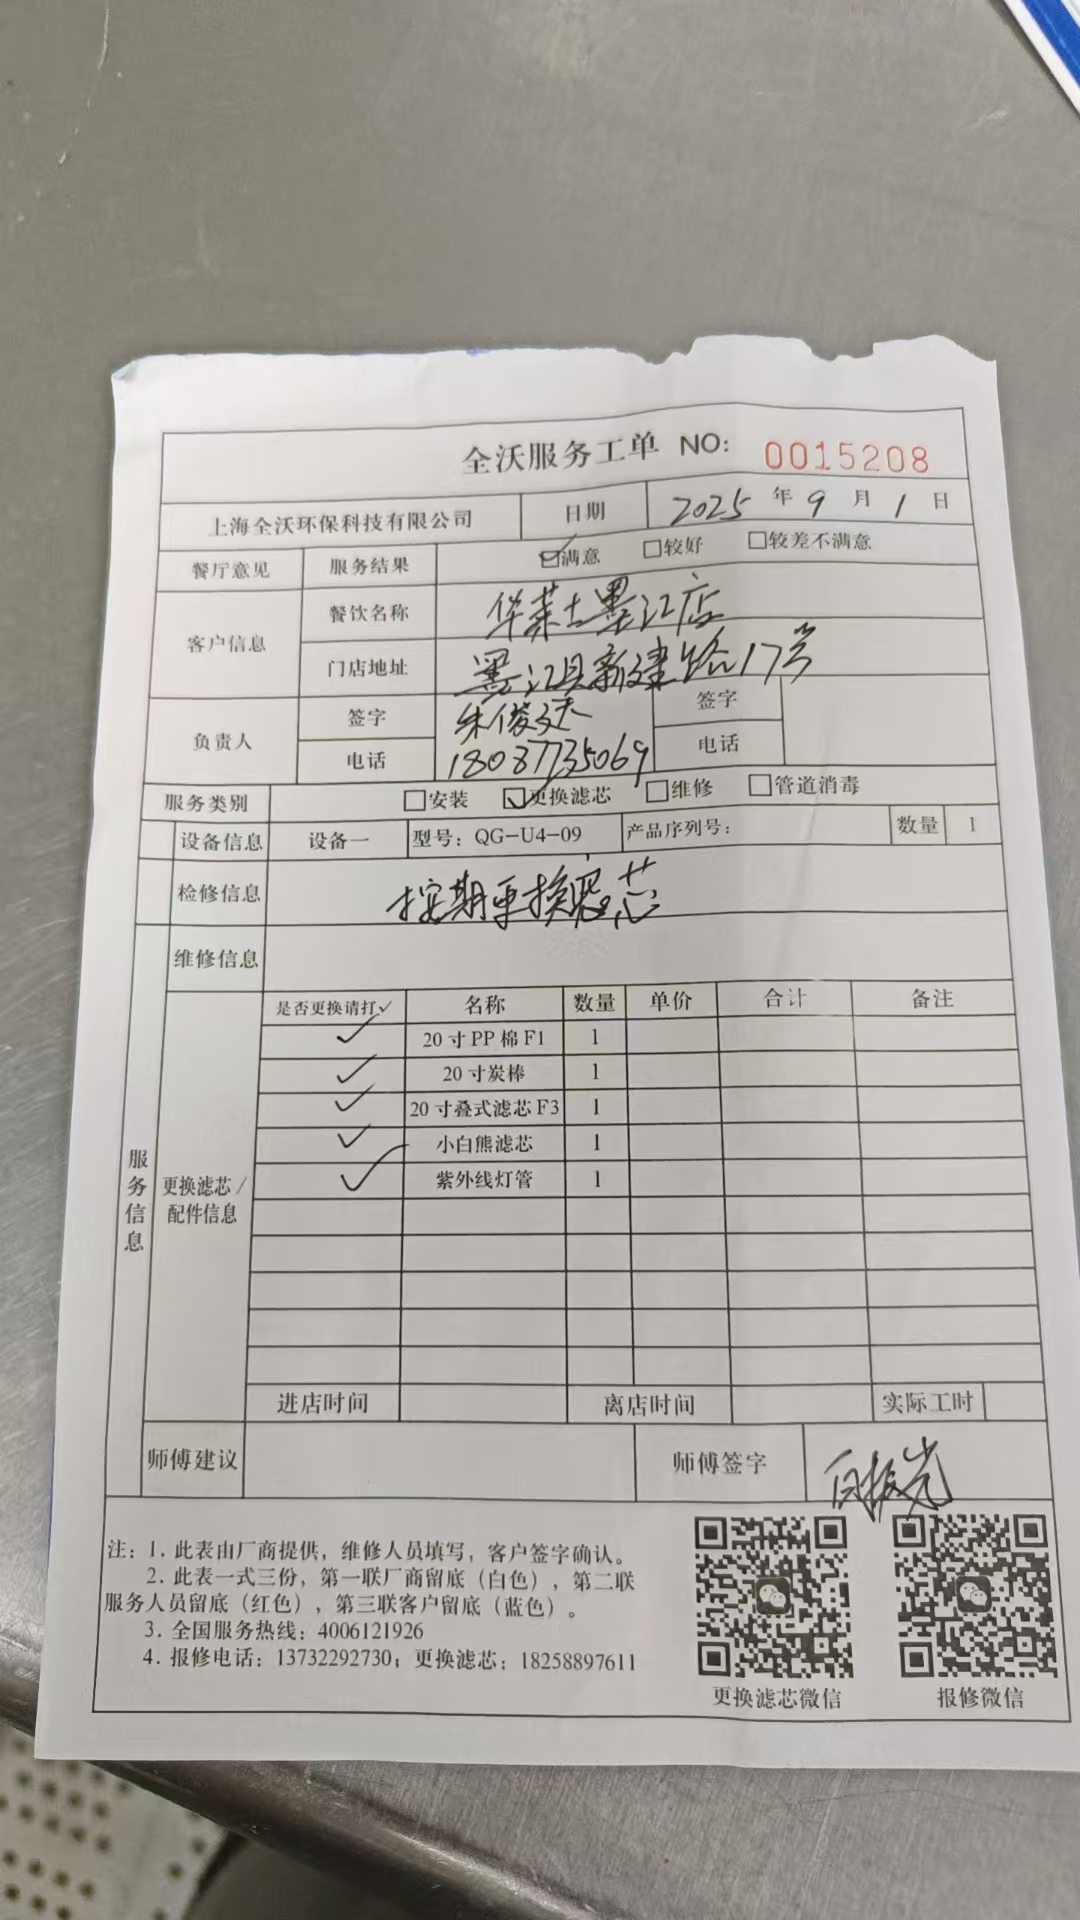 全沃服务工单 NO: 0015208
上海全沃环保科技有限公司 日期 2025 年 9 月 1 日
餐厅意见 服务结果 ☑满意 □较好 □较差不满意
客户信息 餐饮名称 华莱士墨江店
门店地址 墨江县新建路17号
负责人 签字 朱俊 签字
电话 18087735069 电话
服务类别 □安装 ☑更换滤芯 □维修 □管道消毒
设备信息 设备一 型号：QG-U4-09 产品序列号： 数量 1
检修信息 按期更换滤芯
维修信息
服务信息
更换滤芯/配件信息
是否更换请打✓ 名称 数量 单价 合计 备注
✓ 20寸PP棉F1 1
✓ 20寸炭棒 1
✓ 20寸叠式滤芯F3 1
✓ 小白熊滤芯 1
✓ 紫外线灯管 1
进店时间 离店时间 实际工时
师傅建议 师傅签字 白振光
注：1. 此表由厂商提供，维修人员填写，客户签字确认。
2. 此表一式三份，第一联厂商留底（白色），第二联
服务人员留底（红色），第三联客户留底（蓝色）。
3. 全国服务热线：4006121926
4. 报修电话：13732292730；更换滤芯：18258897611
更换滤芯微信 报修微信